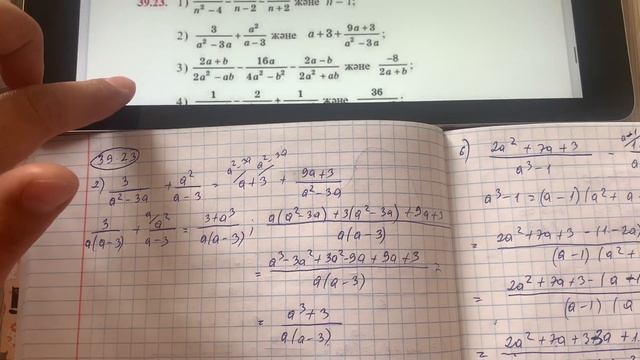 39.23. 1) n² − 4 n − 2 n + 2 және n − 1;
2) 3/(a² − 3a) + a²/(a − 3) және a + 3 + (9a + 3)/(a² − 3a);
3) (2a + b)/(2a² − ab) − 16a/(4a² − b²) − (2a − b)/(2a² + ab) және −8/(2a + b);
4) 1 − 2 + 1 және 36 ;
39.23
2) 3/(a² − 3a) + a²/(a − 3) = a² − 3a/ a + a² − 3a/ 3 + (9a + 3)/(a² − 3a)
3/(a(a − 3)) + a/ a²/(a − 3) = (3 + a³)/(a(a − 3)); (a(a² − 3a) + 3(a² − 3a) + 9a + 3)/(a(a − 3))
= (a³ − 3a² + 3a² − 9a + 9a + 3)/(a(a − 3)) =
= (a³ + 3)/(a(a − 3))
6) (2a² + 7a + 3)/(a³ − 1) −
a³ − 1 = (a − 1)(a² + a
= (2a² + 7a + 3 − (1 − 2a)/((a − 1)(a² +
= (2a² + 7a + 3 − (a +/((a − 1)(a
= 2a² + 7a + 3